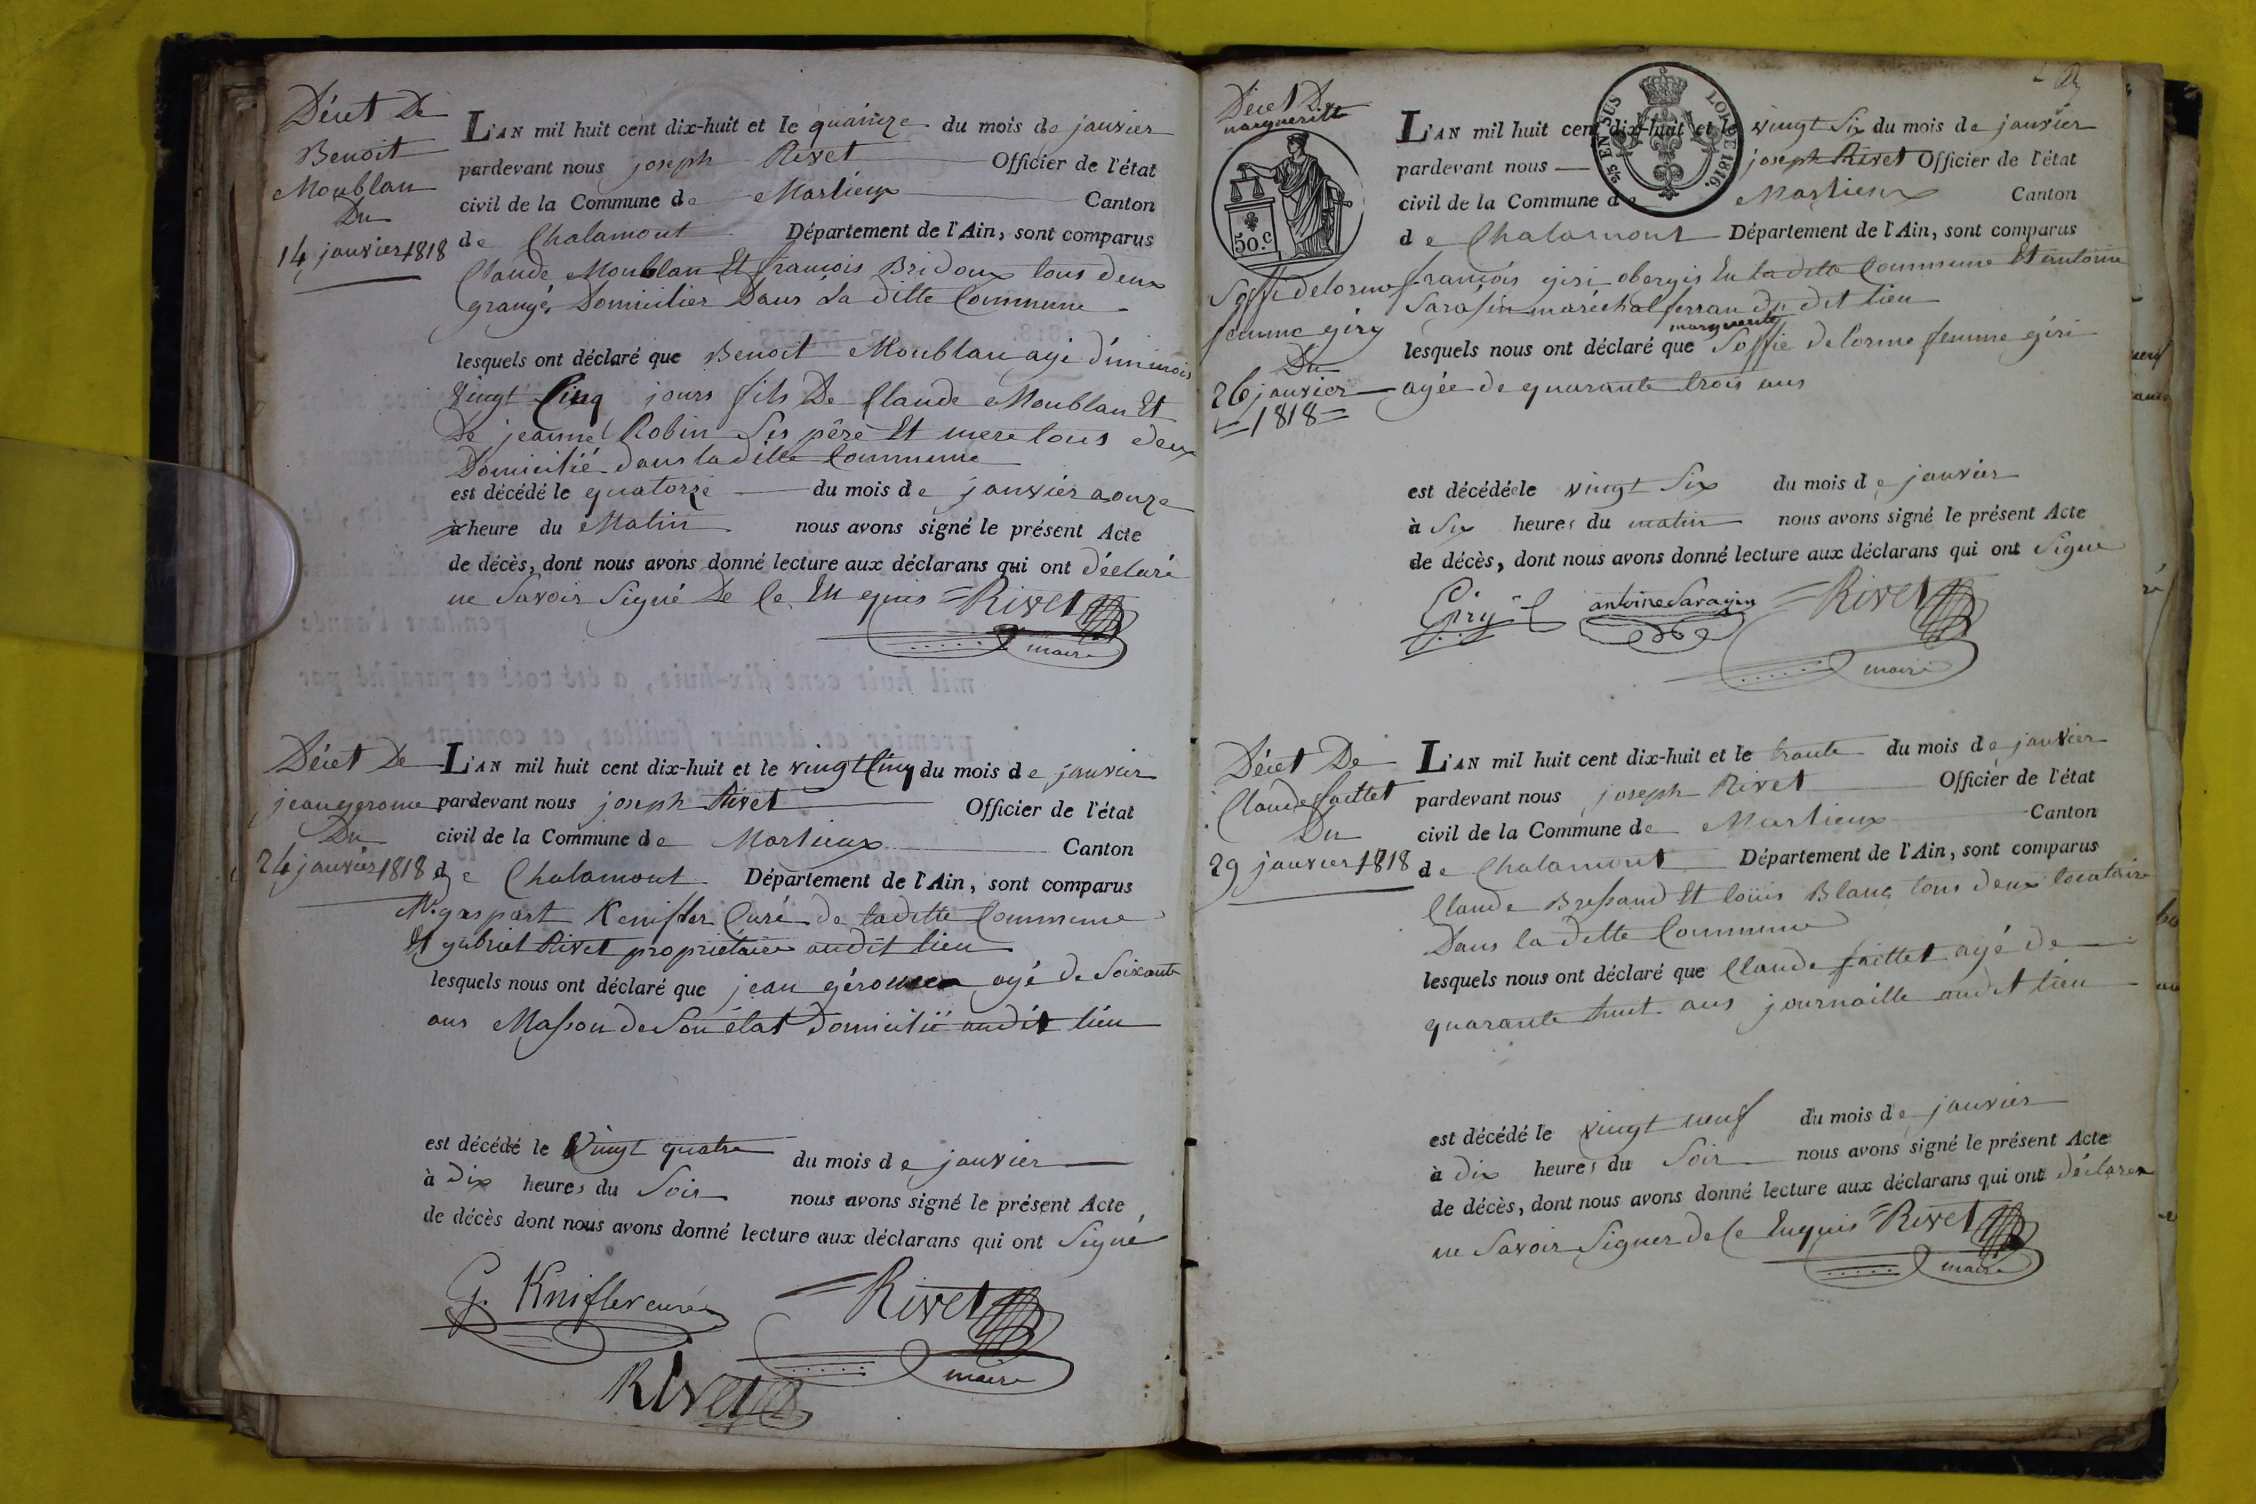 Décet De
Benoit
Moublan
Du
14 janvier 1818
L'AN mil huit cent dix-huit et le quainze du mois de janvier
pardevant nous joseph Rivet Officier de l'état
civil de la Commune de Marlieux Canton
de Chalamont Département de l'Ain, sont comparus
Claude Moublan Et francois Bridoux tous deux
grangé, Domicilier Dans La ditte Commune
lesquels ont déclaré que Benoit Moublan agé d'un mois
Vingt Cinq jours fils De Claude Moublan Et
De jeanne Robin Ses père Et mere tous deux
Domicilié dans ladite Commune
est décédé le quatorze du mois de janvier a onze
à heure du Matin nous avons signé le présent Acte
de décès, dont nous avons donné lecture aux déclarans qui ont déclaré
ne Savoir Signé De ce En quis Rivet
maire
Décet De
jean gerome
Du
24 janvier 1818
L'AN mil huit cent dix-huit et le vingt Cinq du mois de janvier
pardevant nous joseph Rivet Officier de l'état
civil de la Commune de Marlieux Canton
de Chalamont Département de l'Ain, sont comparus
Mr. gaspart Kenifler Curé de laditte Commune
Et gabriel Rivet propriétaire audit lieu
lesquels nous ont déclaré que jean gérome agé de Soixante
ans Masson de Son état domicilié audit lieu
est décédé le Vingt quatre du mois de janvier
à dix heures du Soir nous avons signé le présent Acte
de décès dont nous avons donné lecture aux déclarans qui ont Signé
G. Knifler curé Rivet
maire
Rivet
Décet De
marguerite
50.c
Soffi delorme
femme géry
Du
26 janvier
1818
25 EN SUS LOI DE 1816.
L'AN mil huit cent dix-huit et le vingt Six du mois de janvier
pardevant nous joseph Rivet Officier de l'état
civil de la Commune de Marlieux Canton
de Chalamont Département de l'Ain, sont comparus
francois giri obergis En ladite Commune Et antoine
Sarasin maréchal ferran du dit lieu
marguerite
lesquels nous ont déclaré que Soffie delorme femme géri
agée de quarante trois ans
est décédée le vingt Six du mois de janvier
à Six heures du matin nous avons signé le présent Acte
de décès, dont nous avons donné lecture aux déclarans qui ont Signe
Giry antoine Sarazin Rivet
maire
Décet De
Claude faittet
Du
29 janvier 1818
L'AN mil huit cent dix-huit et le trante du mois de janvier
pardevant nous joseph Rivet Officier de l'état
civil de la Commune de Marlieux Canton
de Chalamont Département de l'Ain, sont comparus
Claude Bressand Et louis Blanc tous deux locataire
Dans la ditte Commune
lesquels nous ont déclaré que Claude faittet agé de
quarante huit ans journaille audit lieu
est décédé le vingt neuf du mois de janvier
à dix heures du Soir nous avons signé le présent Acte
de décès, dont nous avons donné lecture aux déclarans qui ont déclarer
ne Savoir Signer de ce Enquis Rivet
maire